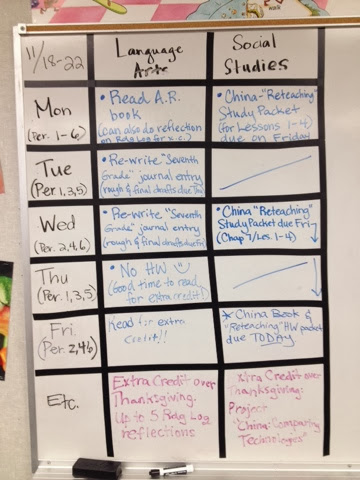 11/18-22
Language
Arts
Social
Studies
Mon
(Per. 1-6)
• Read A.R.
book
(can also do reflection
on Rdg Log for x.c.)
• China-"Reteaching"
Study Packet
(for Lessons 1-4)
due on Friday
Tue
(Per 1,3,5)
• Re-write "Seventh
Grade" journal entry
(rough & final drafts due Thu)
Wed
(Per. 2,4,6)
• Re-write "Seventh
Grade" journal entry
(rough & final drafts due Fri)
• China "Reteaching"
Study Packet due Fri
(Chap 7/Les. 1-4)
Thu
(Per. 1,3,5)
• No HW
(Good time to read
for extra credit!)
Fri.
(Per. 2,4,6)
Read for extra
credit!!
* China Book &
"Reteaching" HW packet
due TODAY
Etc.
Extra Credit over
Thanksgiving:
Up to 5 Rdg Log
reflections
Xtra Credit over
Thanksgiving:
Project
"China: Comparing
Technologies"